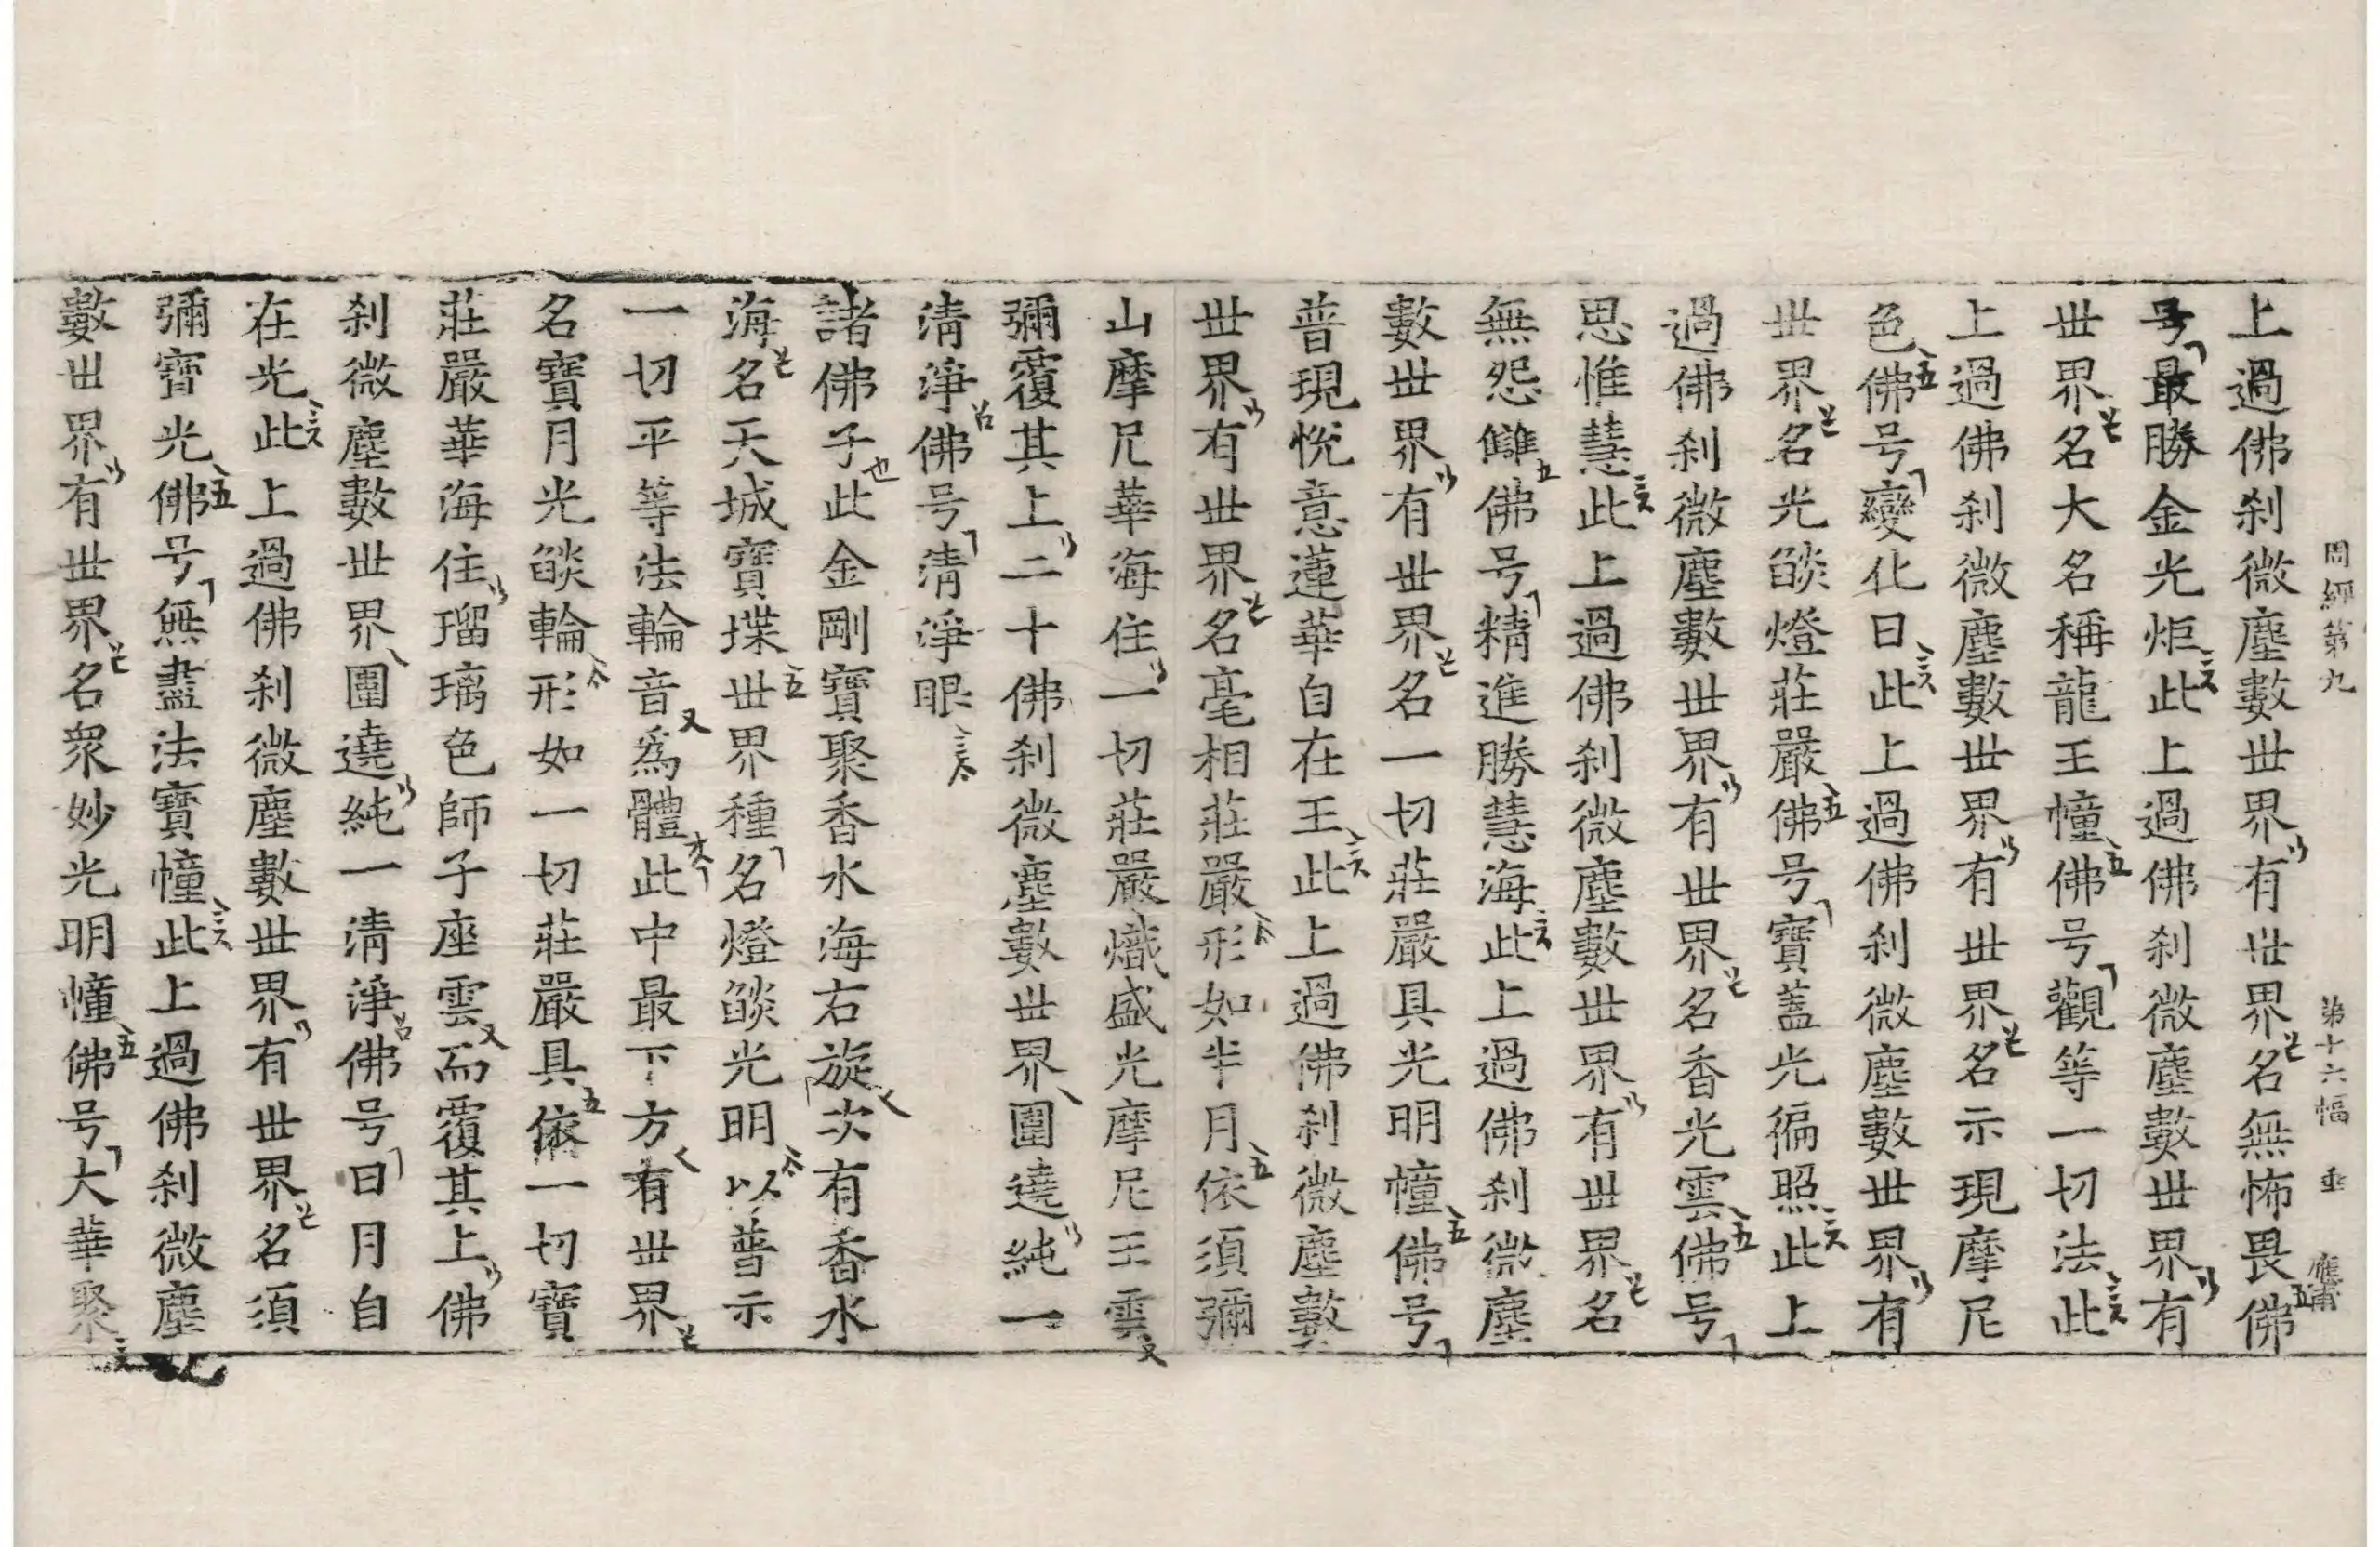 周經第九 第十六幅 垂
上過佛剎微塵數世界有世界名無怖畏佛
号最勝金光炬此上過佛剎微塵數世界有
世界名大名稱龍王幢佛号觀等一切法此
上過佛剎微塵數世界有世界名示現摩尼
色佛号變化日此上過佛剎微塵數世界有
世界名光燄燈莊嚴佛号寶蓋光徧照此上
過佛剎微塵數世界有世界名香光雲佛号
思惟慧此上過佛剎微塵數世界有世界名
無怨讎佛号精進勝慧海此上過佛剎微塵
數世界有世界名一切莊嚴具光明幢佛号
普現恱意蓮華自在王此上過佛剎微塵數
世界有世界名毫相莊嚴形如半月依須彌
山摩尼華海住一切莊嚴熾盛光摩尼王雲
彌覆其上二十佛剎微塵數世界圍遶純一
清淨佛号清淨眼
諸佛子此金剛寶聚香水海右旋次有香水
海名天城寶堞世界種名燈燄光明以普示
一切平等法輪音爲體此中最下方有世界
名寶月光燄輪形如一切莊嚴具依一切寶
莊嚴華海住瑠璃色師子座雲而覆其上佛
剎微塵數世界圍遶純一清淨佛号日月自
在光此上過佛剎微塵數世界有世界名須
彌寶光佛号無盡法寶幢此上過佛剎微塵
數世界有世界名衆妙光明幢佛号大華聚